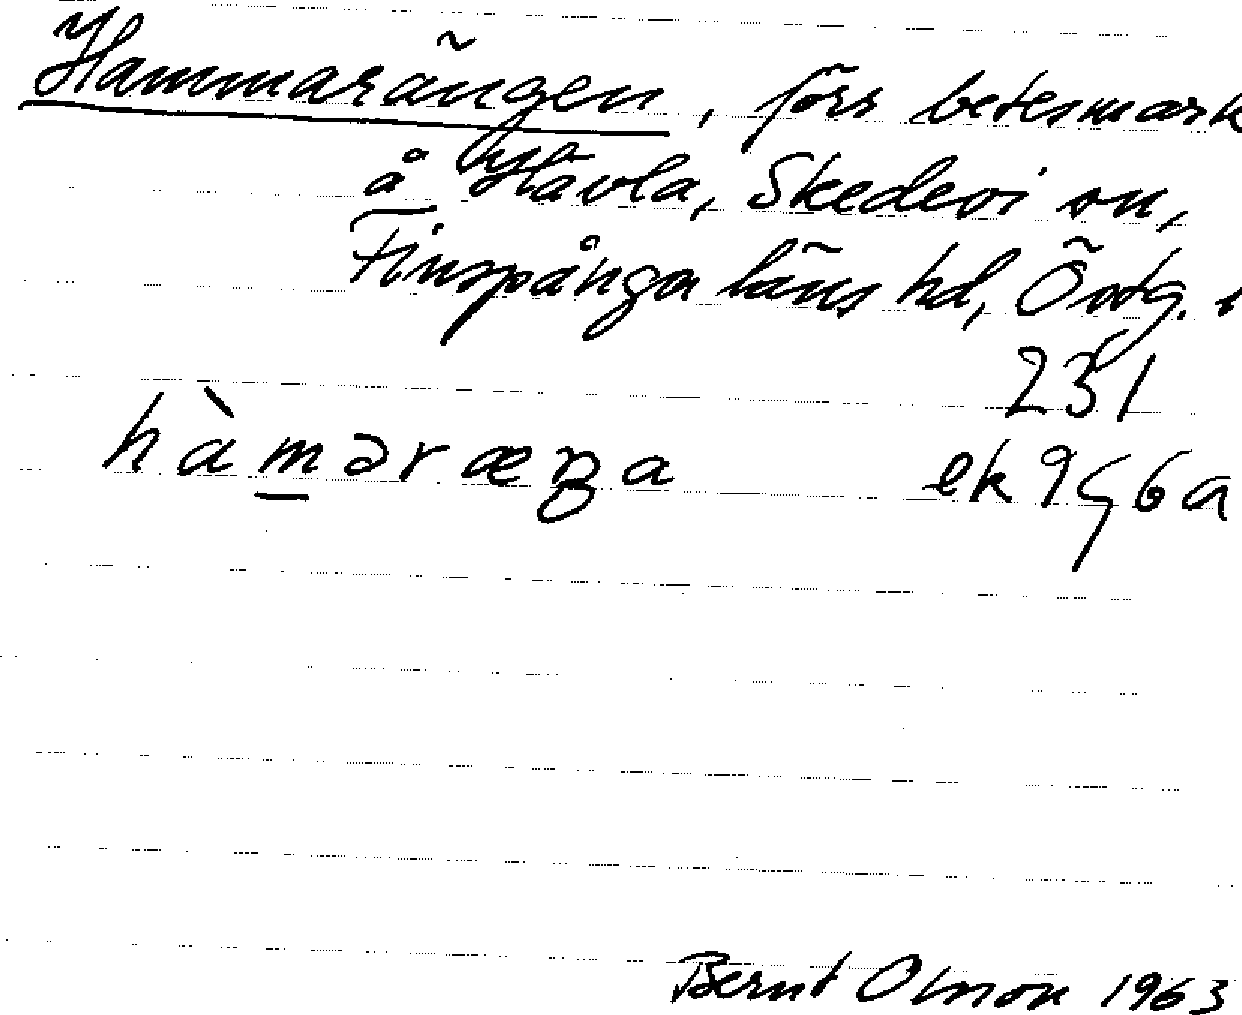 Hammarängen, förr betesmark
å Hävla, Skedevi sn,
Finspånga läns hd, Östg. l
231
hàməræŋa ek 9G6a
Bernt Olsson 1963